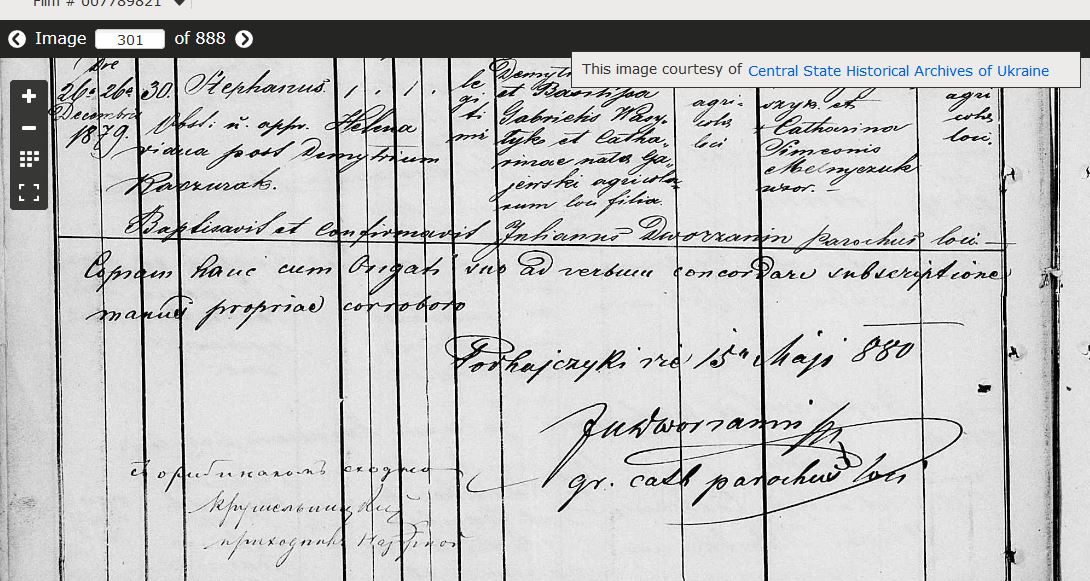 Film # 007789821
Image 301 of 888
This image courtesy of Central State Historical Archives of Ukraine
26a 26a 30. Stephanus 1. 1. le- et agri- agri
Decembris gi- Gabrielis Wasy- cola et cola
1879. Obst. u. app. Helena ti- lyk et Catha- loci Catharina loci.
vidua post Demytrium mi rinae nata Ga- Simeonis
Kaczurak. jewski agricola- Melnyczuk
rum loci filia. uxor. —
Baptisavit et confirmavit Julianus Dworzanin parochus loci. —
Copiam hanc cum Origali suo ad verbum concordare subscriptione
manus propriae corroboro
Podhajczyki die 15a Maji 880
JuDworzanin
gr. cath parochus loci
съ оригиналомъ сходно
Крушельницкий
приходникъ